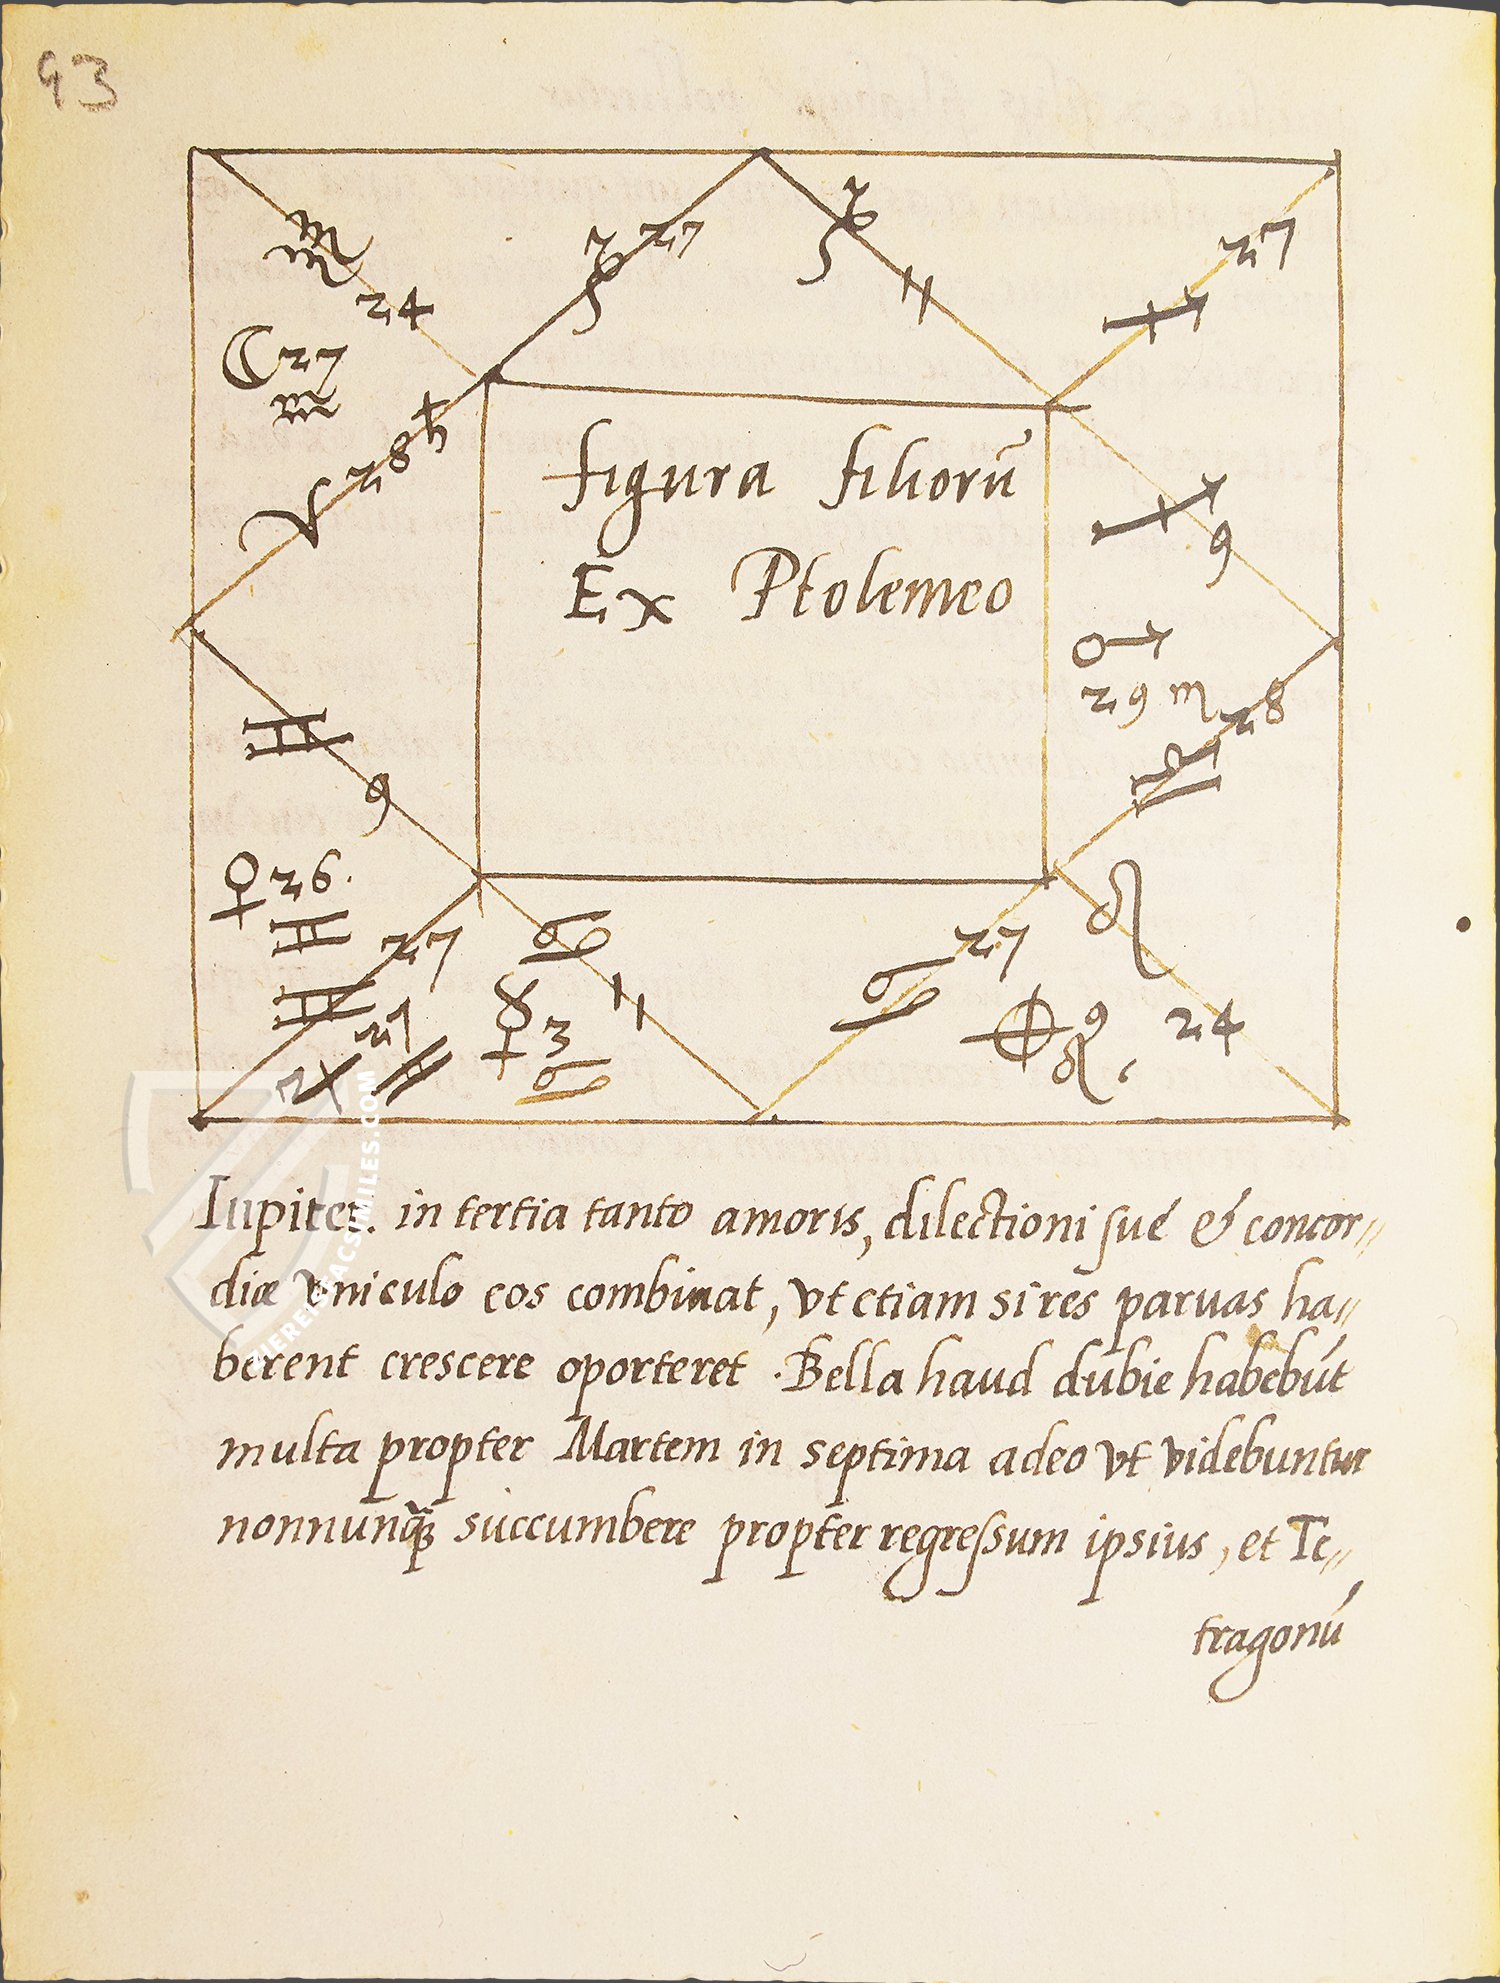 93
♒ 24
♑ 27
♑ 11
♐ 27
☾ 27
♍
♈ 28
figura filiorū
Ex Ptolemeo
♐ 9
♂
29 ♏ 28
♎
♊ 9
♀ 26.
♊ 27
♊
27
♃ ♊
♋
☿ 3 11
♋
27
♋
♌
⊕ 9 24
♌
Iupiter. in tertia tanto amoris, dilectioni sué & concor〃
diæ vniculo eos combinat, vt etiam si res paruas ha〃
berent crescere oporteret. Bella haud dubie habebūt
multa propter Martem in septima adeo vt videbuntur
succumbere propter regressum ipsius, et Te〃
tragonū
TIERENFACSIMILES.COM